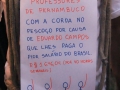 PROFESSORES
DE PERNAMBUCO
COM A CORDA NO
PESCOÇO POR CAUSA
DE EDUARDO CAMPOS
QUE LHES PAGA O
PIOR SALÁRIO DO BRASIL